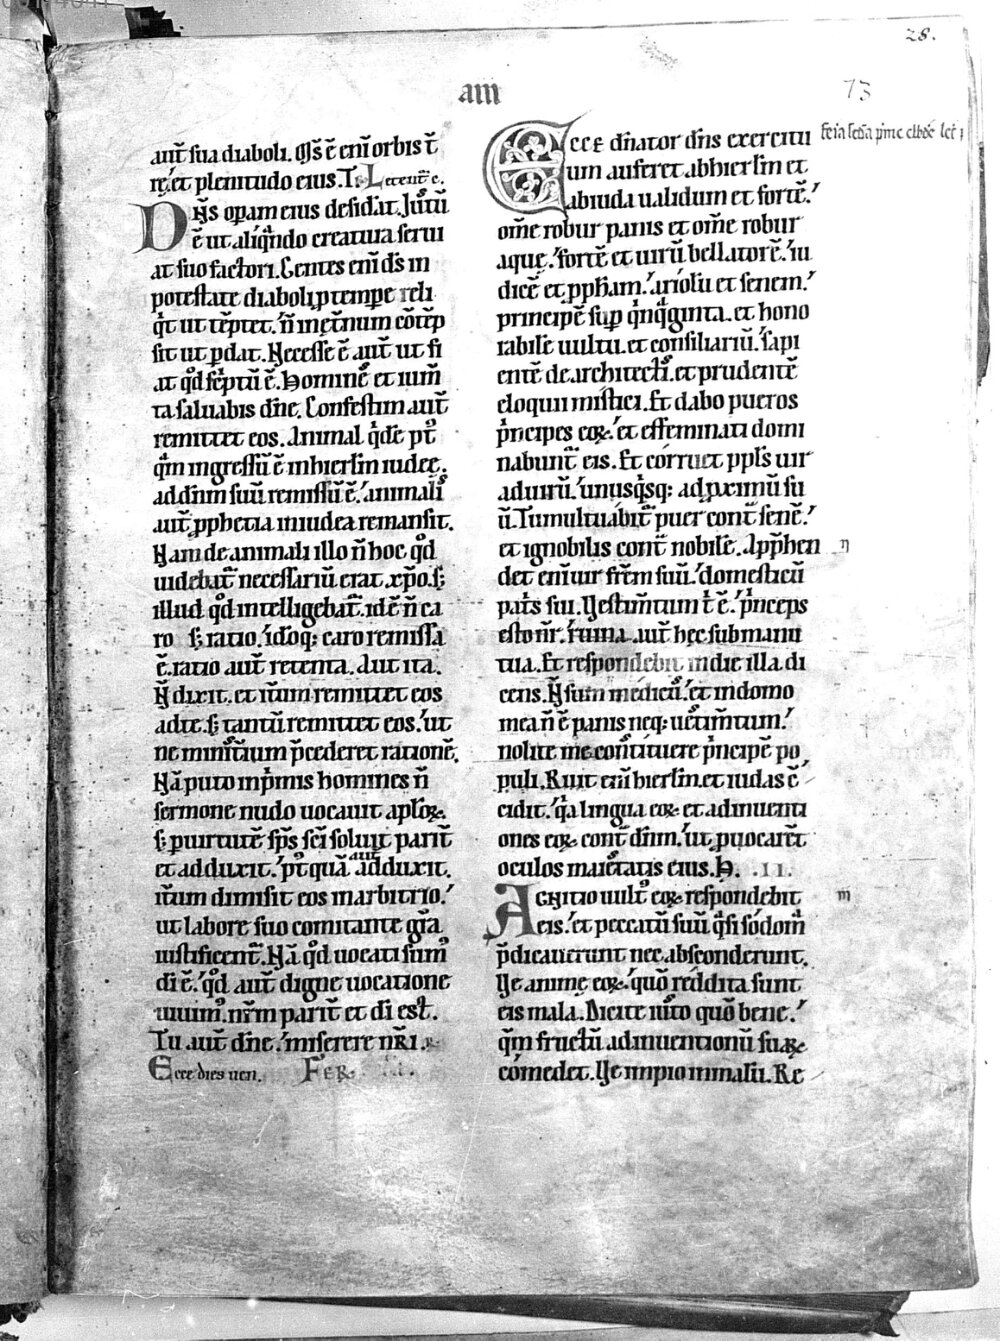 28.
73
am
aut̄ sua diaboli. Qs̄ ē enī orbis t̄
rę. et plenitudo eius. T. Letent̄ c.
Dn̄s opam eius desid̓at. Jūtū
ē ut aliq̄ndo creatura serui
at suo factori. Gentes enī ds̄ in
potestate diaboli ptempe reli
q̄t ut tēptet. n̄ inęt̓num cōtēp
sit ut pdat. Necesse ē aut̄ ut fi
at qd̄ sc̓ptū ē. Hominē et ium̄
ta saluabis dn̄e. Confestim aut̄
remittet eos. Animal q̓de pt̄
q̄m ingressū ē inhierlm̄ iudęę.
ad dn̄m suū remissū ē. animalis
aut̄ pphetia iniudea remansit.
Nam de animali illo n̄ hoc qd̄
uidebat̄ necessariū erat xp̄o. s;
illud qd̄ intelligebat̄. idē n̄ ca
ro s; ratio. id̓oq: caro remissa
ē. ratio aut̄ retenta. Aut ita.
N̄ dixit. et it̄um remittet eos
adte. s; tantū remittet eos. ut
ne minist̓ium p̄cederet rationē.
Nā puto inp̓mis homines n̄
sermone nudo uocauit aplōꝝ.
s; puirtutē sps̄ sc̄i soluit parit̄
et adduxit. pt̓quā aut̄ adduxit.
it̄um dimisit eos inarbitrio.
ut labore suo comitante gr̄a
iustificent̄. Nā qd̄ uocati sum̓
di ē. qd̄ aut̄ digne uocatione
uiuim̓. nr̄m parit̄ et di est.
Tu aut̄ dn̄e. miserere nr̄i.
Ecce dies uen. FER.
feria scd̄a p̓me ebdōe lect̄ j
Ecce dn̄ator dn̄s exercitu
um auferet abhierlm̄ et
abiuda ualidum et fortē.
om̄e robur panis et om̄e robur
aquę. fortē et uirū bellatorē. iu
dicē et pphām. ariolū et senem.
principē sup q̓nq̄ginta. et hono
rabilē uultu. et consiliariū. sapi
entē de architectis. et prudentē
eloquii mistici. Et dabo pueros
p̓ncipes eoꝝ. et effeminati domi
nabunt̄ eis. Et corruet ppl̄s uir
aduirū. unusq̓sq: adproximū su
ū. Tumultuabit̄ puer cont̄ senē.
et ignobilis cont̄ nobilē. Apphen n
det enī uir frēm suū. domesticū
pat̓s sui. Uestim̄tum t̄ ē. p̓nceps
esto nr̄. ruina aut̄ hęc submanu
tua. Et respondebit indie illa di
cens. N̄ sum medicus. et indomo
mea n̄ ē panis neq: uestim̄tum.
nolite me constituere p̓ncipē po
puli. Ruit enī hierlm̄. et iudas ē
cidit. q̓a lingua eoꝝ et adinuenti
ones eoꝝ cont̄ dn̄m. ut puocarēt
oculos maiestatis eius. H. .II.
Agnitio uult̓ eoꝝ respondebit m
eis. et peccatū suū q̄si sodom̄a
p̄dicauerunt nec absconderunt.
Uę animę eoꝝ. quō reddita sunt
eis mala. Dicite iusto quō bene.
q̄m fructū adinuentionū suaꝝ
comedet. Uę impio inmalū. Re